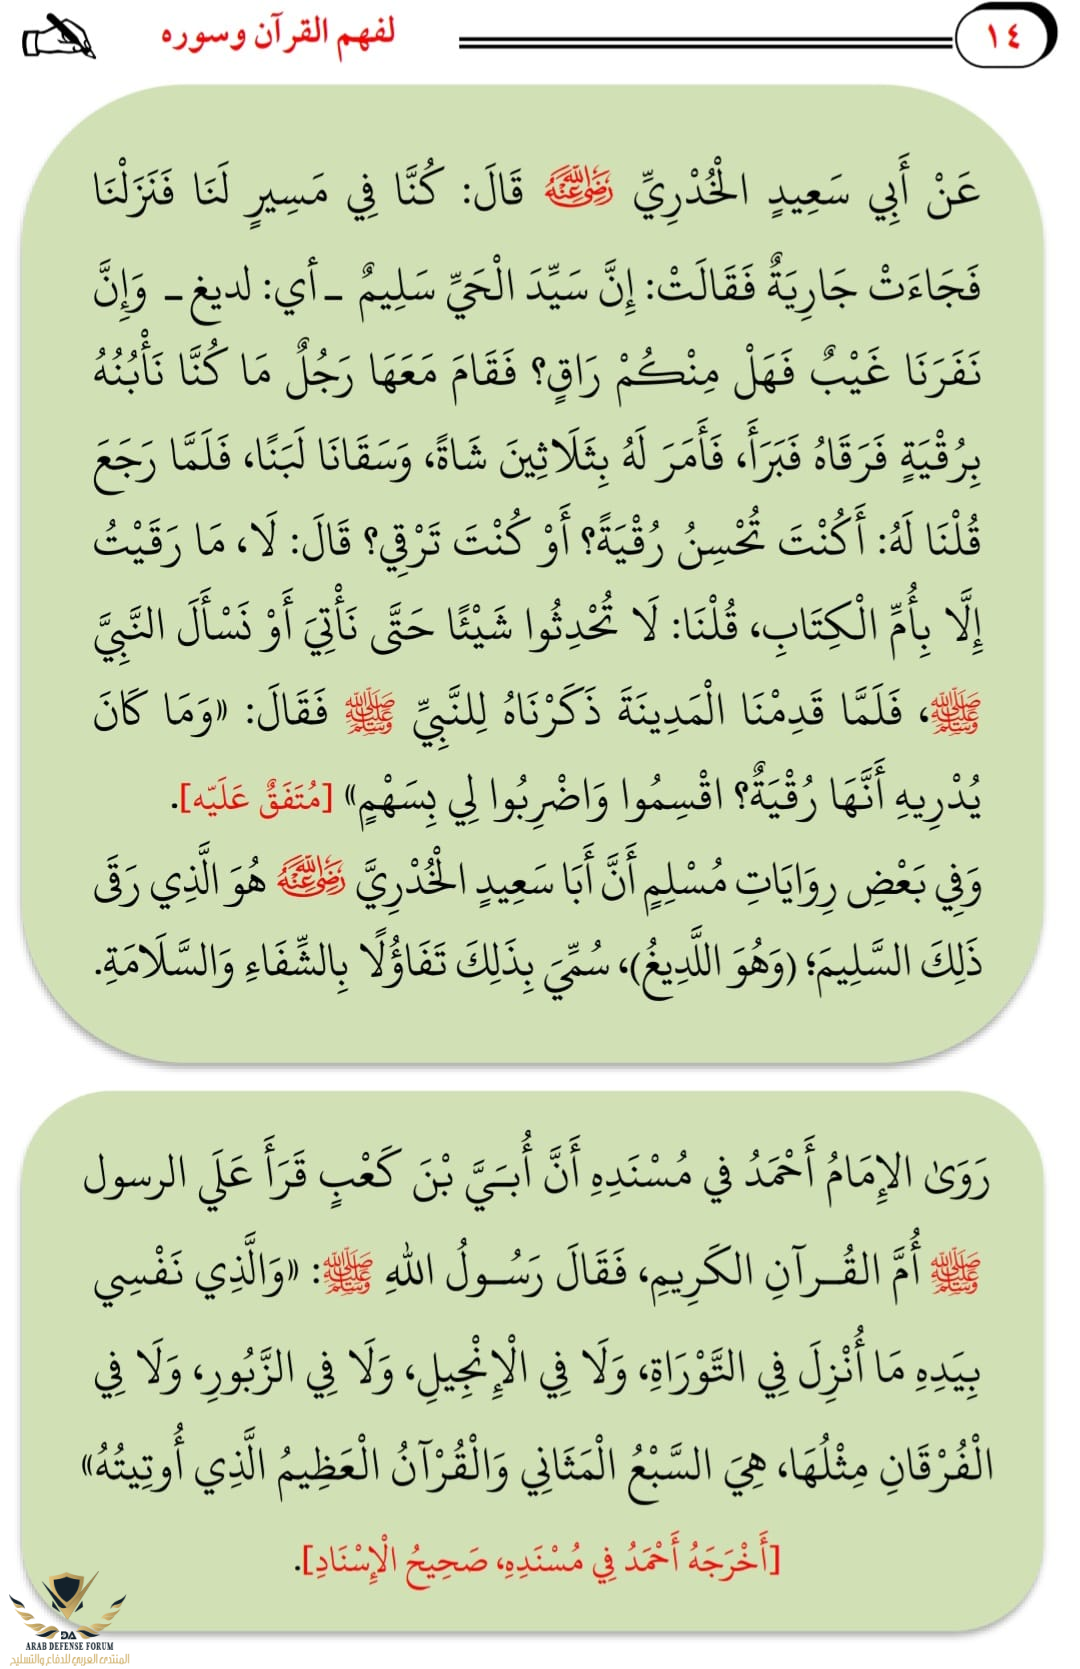 ١٤
لفهم القرآن وسوره
عَنْ أَبِي سَعِيدٍ الْخُدْرِيِّ رَضِيَ اللَّهُ عَنْهُ قَالَ: كُنَّا فِي مَسِيرٍ لَنَا فَنَزَلْنَا
فَجَاءَتْ جَارِيَةٌ فَقَالَتْ: إِنَّ سَيِّدَ الْحَيِّ سَلِيمٌ ـ أي: لديغ ـ وَإِنَّ
نَفَرَنَا غَيْبٌ فَهَلْ مِنْكُمْ رَاقٍ؟ فَقَامَ مَعَهَا رَجُلٌ مَا كُنَّا نَأْبُنُهُ
بِرُقْيَةٍ فَرَقَاهُ فَبَرَأَ، فَأَمَرَ لَهُ بِثَلَاثِينَ شَاةً، وَسَقَانَا لَبَنًا، فَلَمَّا رَجَعَ
قُلْنَا لَهُ: أَكُنْتَ تُحْسِنُ رُقْيَةً؟ أَوْ كُنْتَ تَرْقِي؟ قَالَ: لَا، مَا رَقَيْتُ
إِلَّا بِأُمِّ الْكِتَابِ، قُلْنَا: لَا تُحْدِثُوا شَيْئًا حَتَّى نَأْتِيَ أَوْ نَسْأَلَ النَّبِيَّ
ﷺ، فَلَمَّا قَدِمْنَا الْمَدِينَةَ ذَكَرْنَاهُ لِلنَّبِيِّ ﷺ فَقَالَ: «وَمَا كَانَ
يُدْرِيهِ أَنَّهَا رُقْيَةٌ؟ اقْسِمُوا وَاضْرِبُوا لِي بِسَهْمٍ» [مُتَفَقٌ عَلَيّه].
وَفِي بَعْضِ رِوَايَاتِ مُسْلِمٍ أَنَّ أَبَا سَعِيدٍ الْخُدْرِيَّ رَضِيَ اللَّهُ عَنْهُ هُوَ الَّذِي رَقَى
ذَلِكَ السَّلِيمَ؛ (وَهُوَ اللَّدِيغُ)، سُمِّيَ بِذَلِكَ تَفَاؤُلًا بِالشِّفَاءِ وَالسَّلَامَةِ.
رَوَىٰ الإِمَامُ أَحْمَدُ في مُسْنَدِهِ أَنَّ أُبَـيَّ بْنَ كَعْبٍ قَرَأَ عَلَي الرسول
ﷺ أُمَّ القُـرآنِ الكَرِيمِ، فَقَالَ رَسُـولُ اللهِ ﷺ: «وَالَّذِي نَفْسِي
بِيَدِهِ مَا أُنْزِلَ فِي التَّوْرَاةِ، وَلَا فِي الْإِنْجِيلِ، وَلَا فِي الزَّبُورِ، وَلَا فِي
الْفُرْقَانِ مِثْلُهَا، هِيَ السَّبْعُ الْمَثَانِي وَالْقُرْآنُ الْعَظِيمُ الَّذِي أُوتِيتُهُ»
[أَخْرَجَهُ أَحْمَدُ فِي مُسْنَدِهِ، صَحِيحُ الْإِسْنَادِ].
DA
ARAB DEFENSE FORUM
المنتدى العربي للدفاع والتسليح